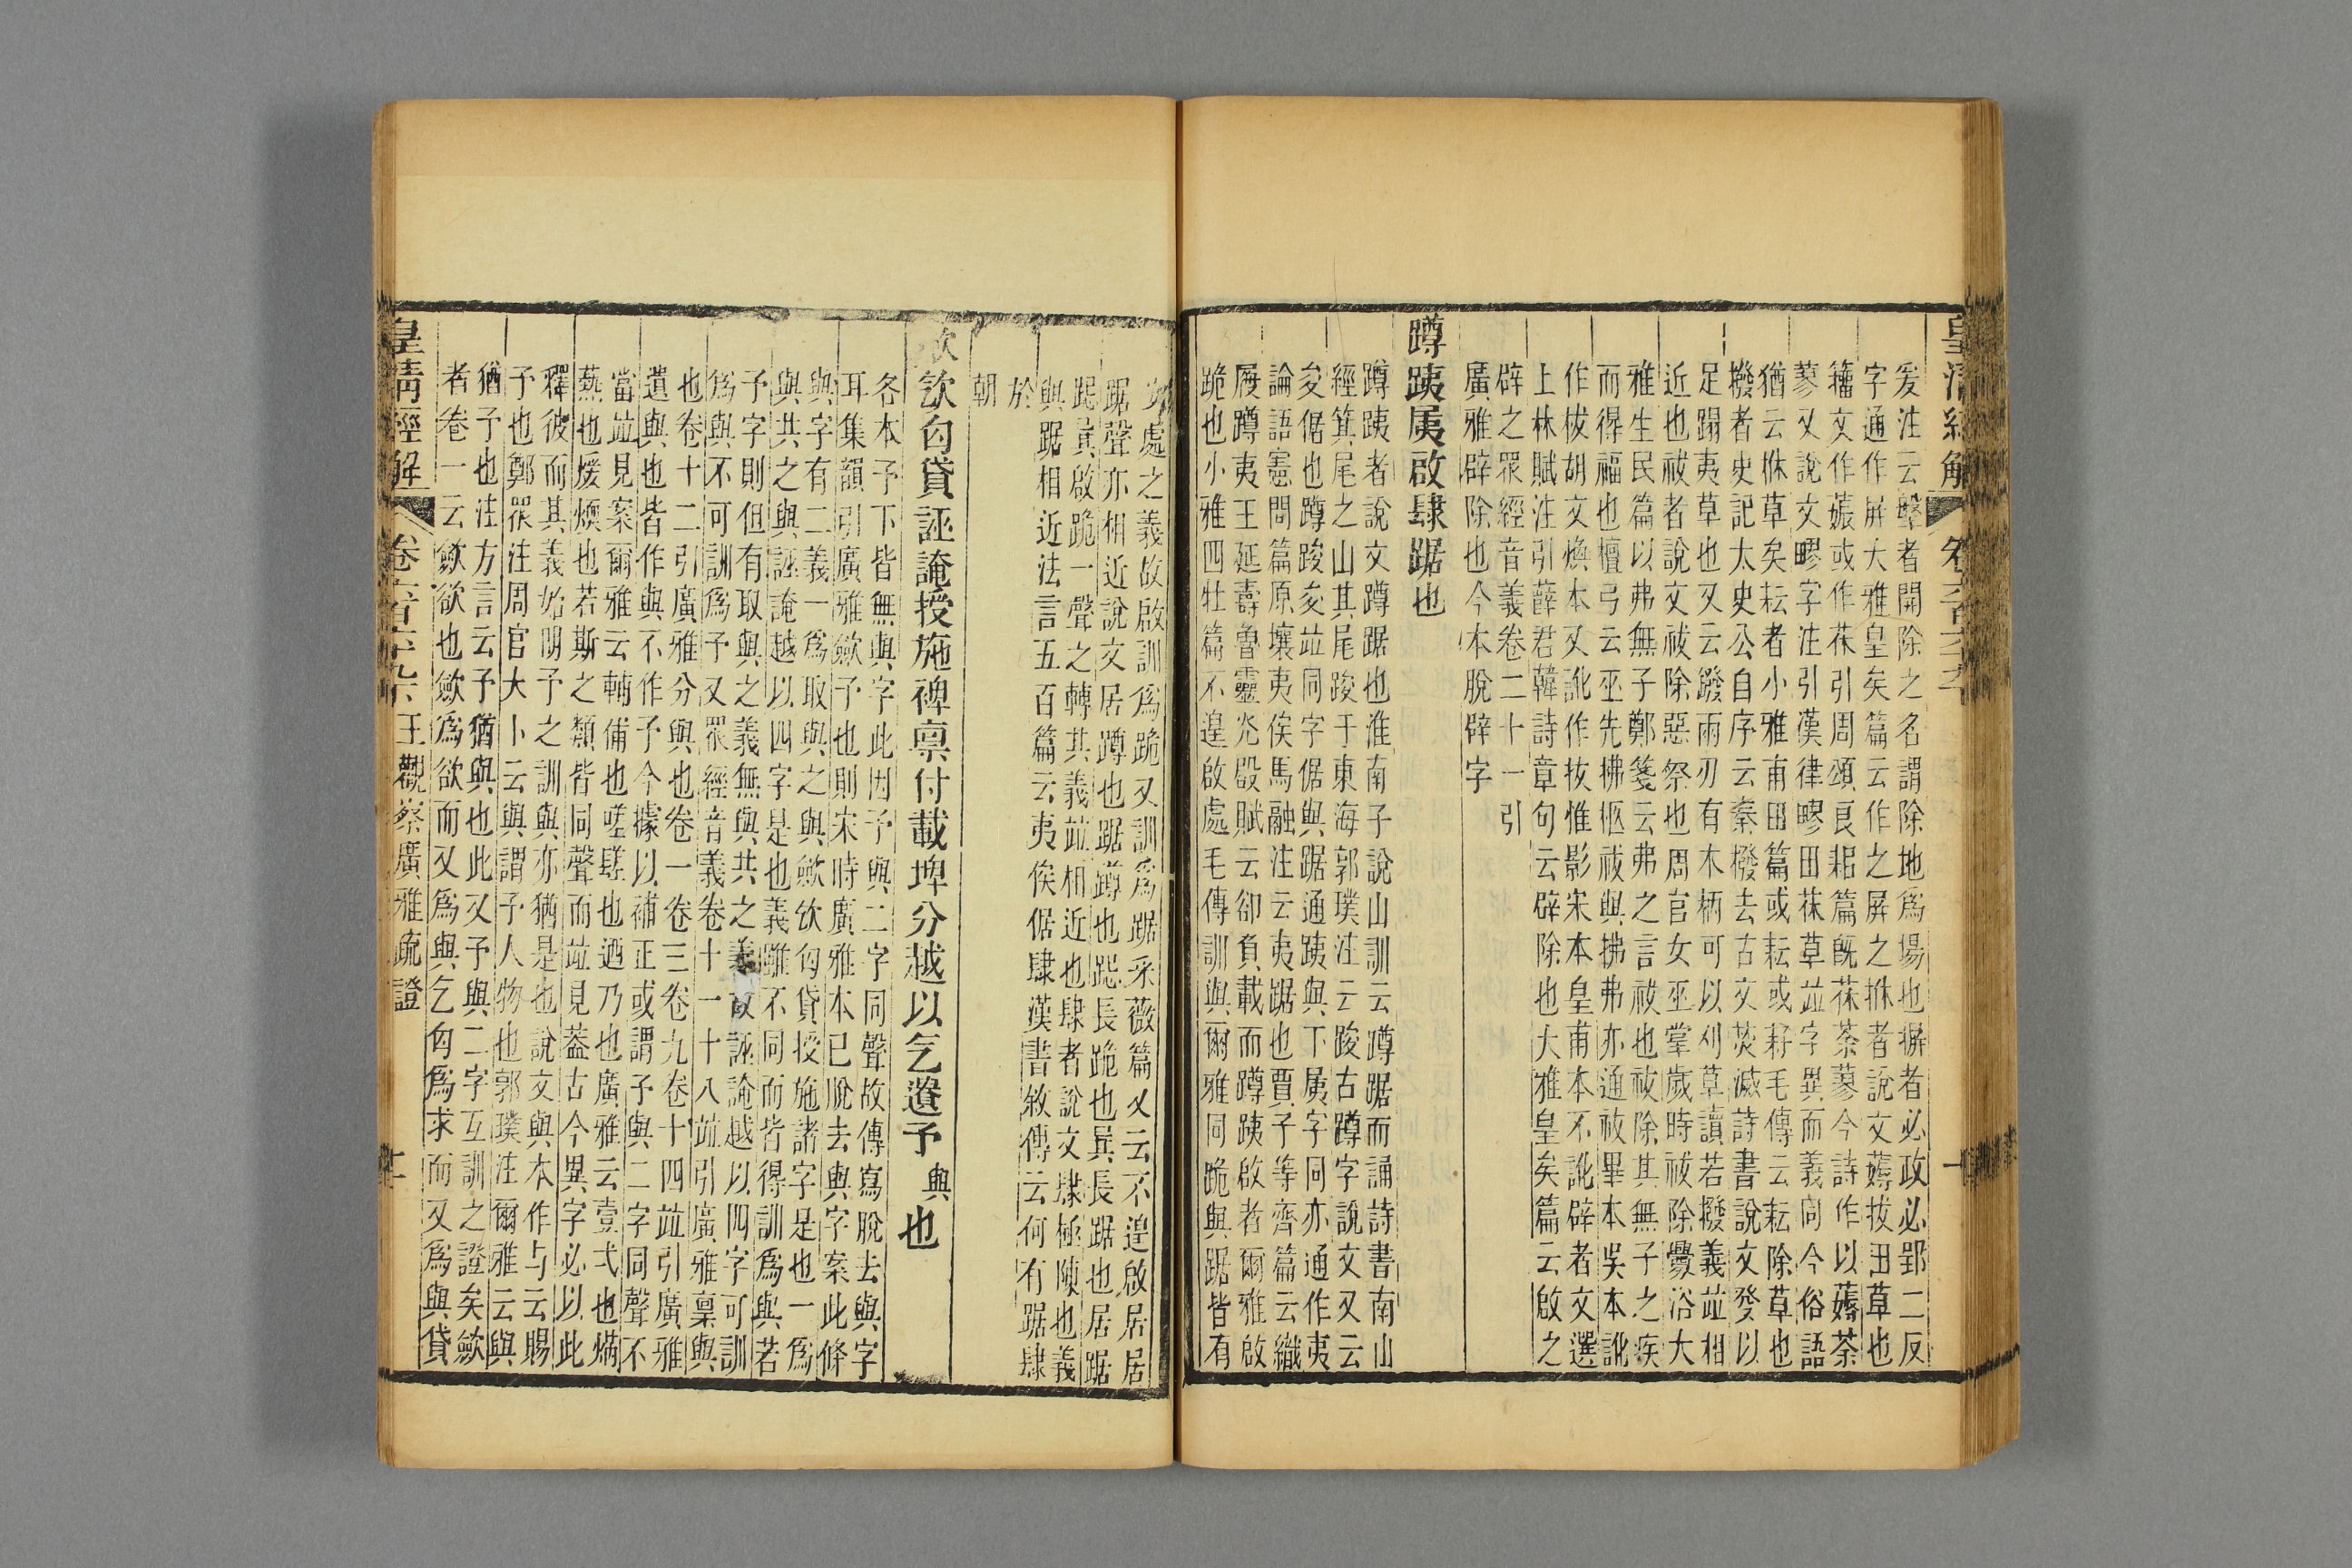 皇清經解
爰注云墾者開除之名謂除地爲場也摒者必政必郢二反
字通作屏大雅皇矣篇云作之屏之𢱧者說文薅拔田草也
籒文作薅或作茠引周頌良耜篇旣茠荼蓼今詩作以薅荼
蓼又說文疁字注引漢律疁田茠草竝字異而義同今俗語
猶云𢱧草矣耘者小雅甫田篇或耘或耔毛傳云耘除草也
撥者史記太史公自序云秦撥去古文焚滅詩書說文癹以
足蹋夷草也又云鏺兩刃有木柄可以刈草讀若撥義竝相
近也祓者說文祓除惡祭也周官女巫掌歲時祓除釁浴大
雅生民篇以弗無子鄭箋云弗之言祓也祓除其無子之疾
而得福也檀弓云巫先拂柩祓與拂弗亦通祓畢本吳本訛
作柭胡文煥本又訛作拔惟影宋本皇甫本不訛辟者文選
上林賦注引薛君韓詩章句云辟除也大雅皇矣篇云啟之
辟之眾經音義卷二十一引
廣雅辟除也今本脫辟字
蹲跠㞾啟肆踞也
蹲跠者說文蹲踞也淮南子說山訓云蹲踞而誦詩書南山
經箕尾之山其尾踆于東海郭璞注云踆古蹲字說文又云
夋倨也蹲踆夋竝同字倨與踞通跠與下㞾字同亦通作夷
論語憲問篇原壤夷俟馬融注云夷踞也賈子等齊篇云織
履蹲夷王延壽魯靈光殿賦云卻負載而蹲跠啟者爾雅啟
跪也小雅四牡篇不遑啟處毛傳訓與爾雅同跪與踞皆有
安處之義故啟訓爲跪又訓爲踞采薇篇又云不遑啟居居
踞聲亦相近說文居蹲也踞蹲也跽長跪也㠱長踞也居踞
跽㠱啟跪一聲之轉其義竝相近也肆者說文肆極陳也義
與踞相近法言五百篇云夷俟倨肆漢書敘傳云何有踞肆
於
朝
歛㰦匄貸誣譇授施裨稟付載埤分越以乞遺予與也
各本予下皆無與字此因予與二字同聲故傳寫脫去與字
耳集韻引廣雅歛予也則宋時廣雅本已脫去與字案此條
與字有二義一爲取與之與歛㰦匄貸授施諸字是也一爲
與共之與誣譇越以四字是也義雖不同而皆得訓爲與若
予字則但有取與之義無與共之義故誣譇越以四字可訓
爲與不可訓爲予又眾經音義卷十一十八竝引廣雅稟與
也卷十二引廣雅分與也卷一卷三卷九卷十四竝引廣雅
遺與也皆作與不作予今據以補正或謂予與二字同聲不
當竝見案爾雅云輔俌也嗟𨲠也迺乃也廣雅云壹弌也㷟
爇也煖煗也若斯之類皆同聲而竝見蓋古今異字必以此
釋彼而其義始明予之訓與亦猶是也說文與本作与云賜
予也鄭眾注周官大卜云與謂予人物也郭璞注爾雅云與
猶予也注方言云予猶與也此又予與二字互訓之證矣歛
者卷一云歛欲也歛爲欲而又爲與乞匄爲求而又爲與貸
皇清經解 卷六百六十九 王觀察廣雅疏證